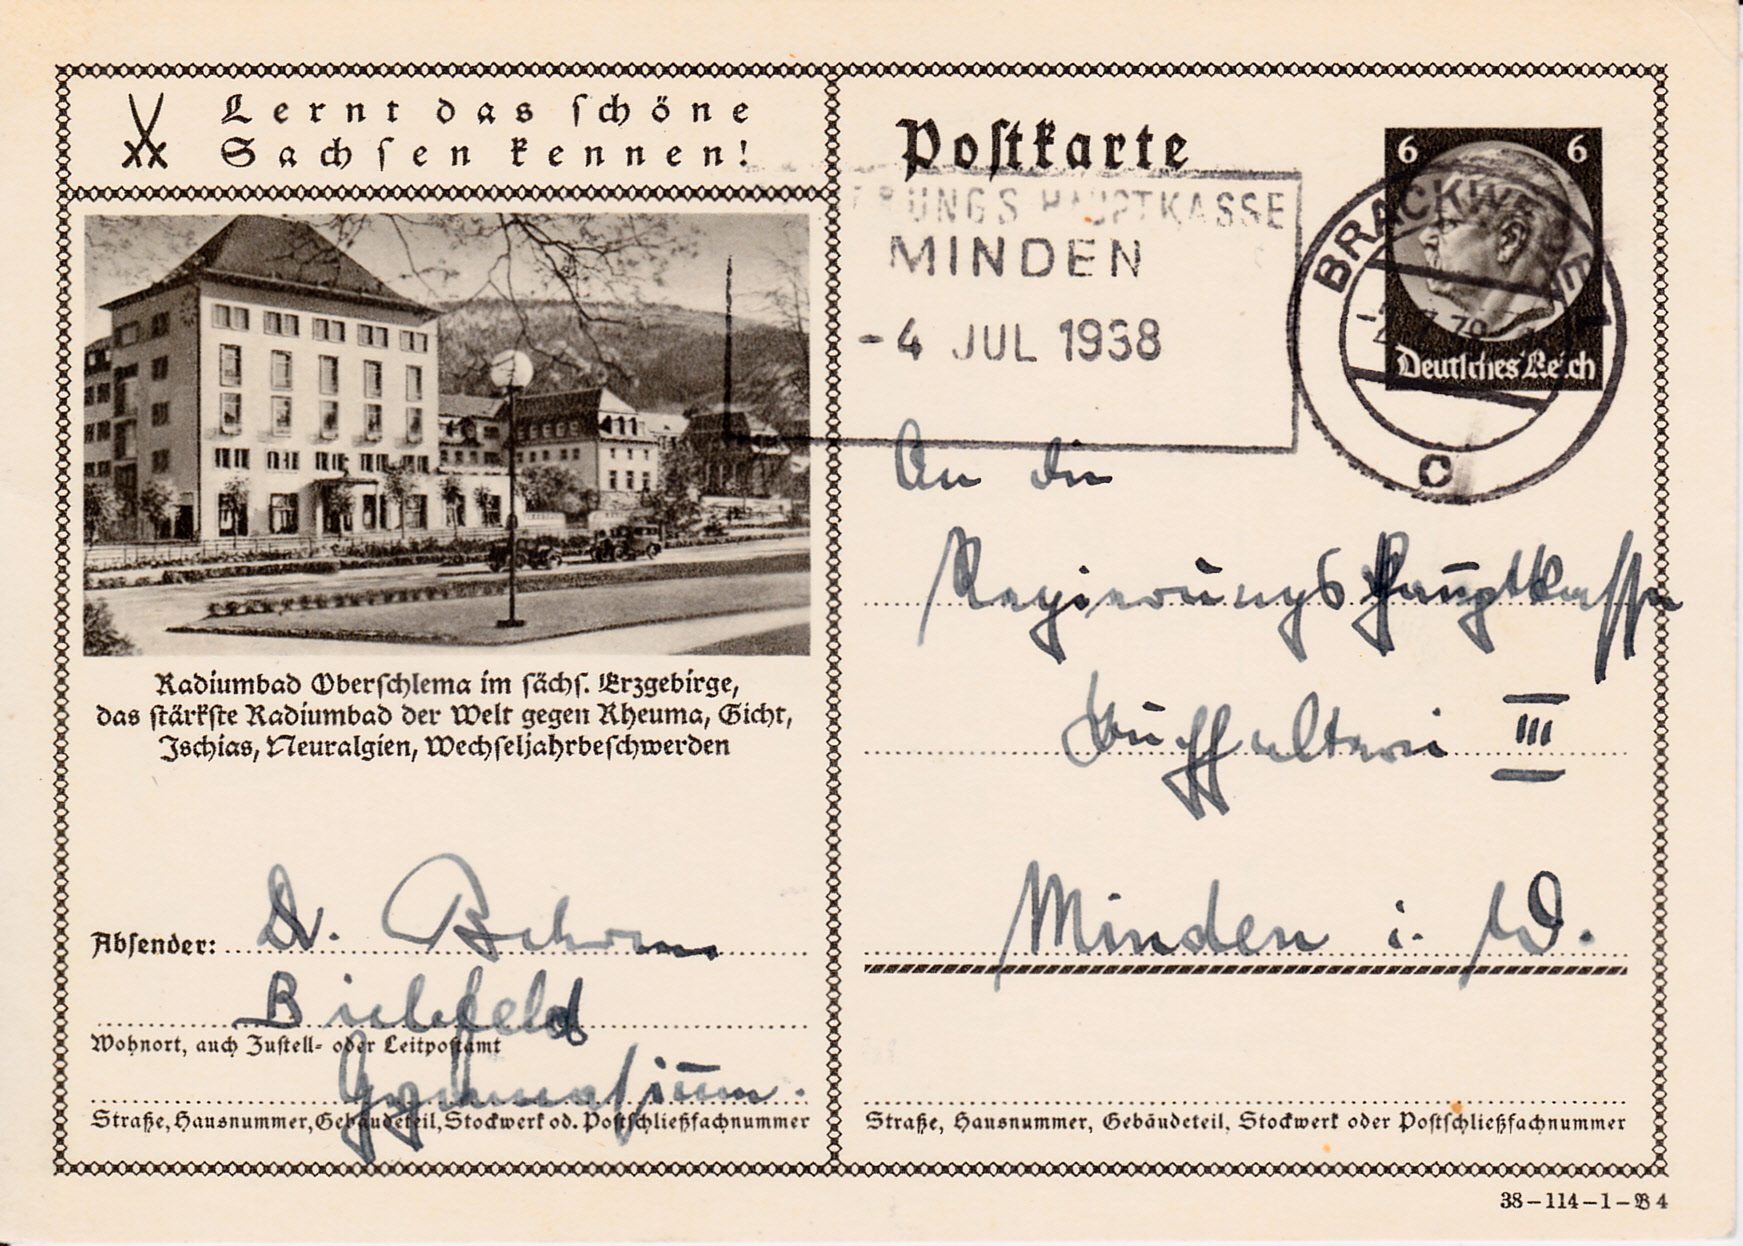 Lernt das schöne
Sachsen kennen!
Radiumbad Oberschlema im sächs. Erzgebirge,
das stärkste Radiumbad der Welt gegen Rheuma, Gicht,
Ischias, Neuralgien, Wechseljahrbeschwerden
Absender: Dr. Behrens
Bielefeld
Wohnort, auch Zustell- oder Leitpostamt
Gymnasium.
Straße, Hausnummer, Gebäudeteil, Stockwerk od. Postschließfachnummer
Postkarte
HAUPTKASSE
MINDEN
-4 JUL 1938
6 6
Deutsches Reich
BRACKWEDE
c
An die
Regierungs Hauptkasse
Buchhalterei III
Minden i. W.
Straße, Hausnummer, Gebäudeteil, Stockwerk oder Postschließfachnummer
38-114-1-B 4